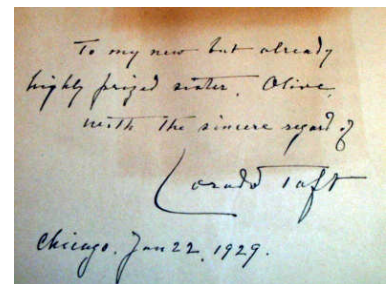 To my new but already
highly prized sister, Olive,
with the sincere regard of
Lorado Taft
Chicago. Jan 22, 1929.